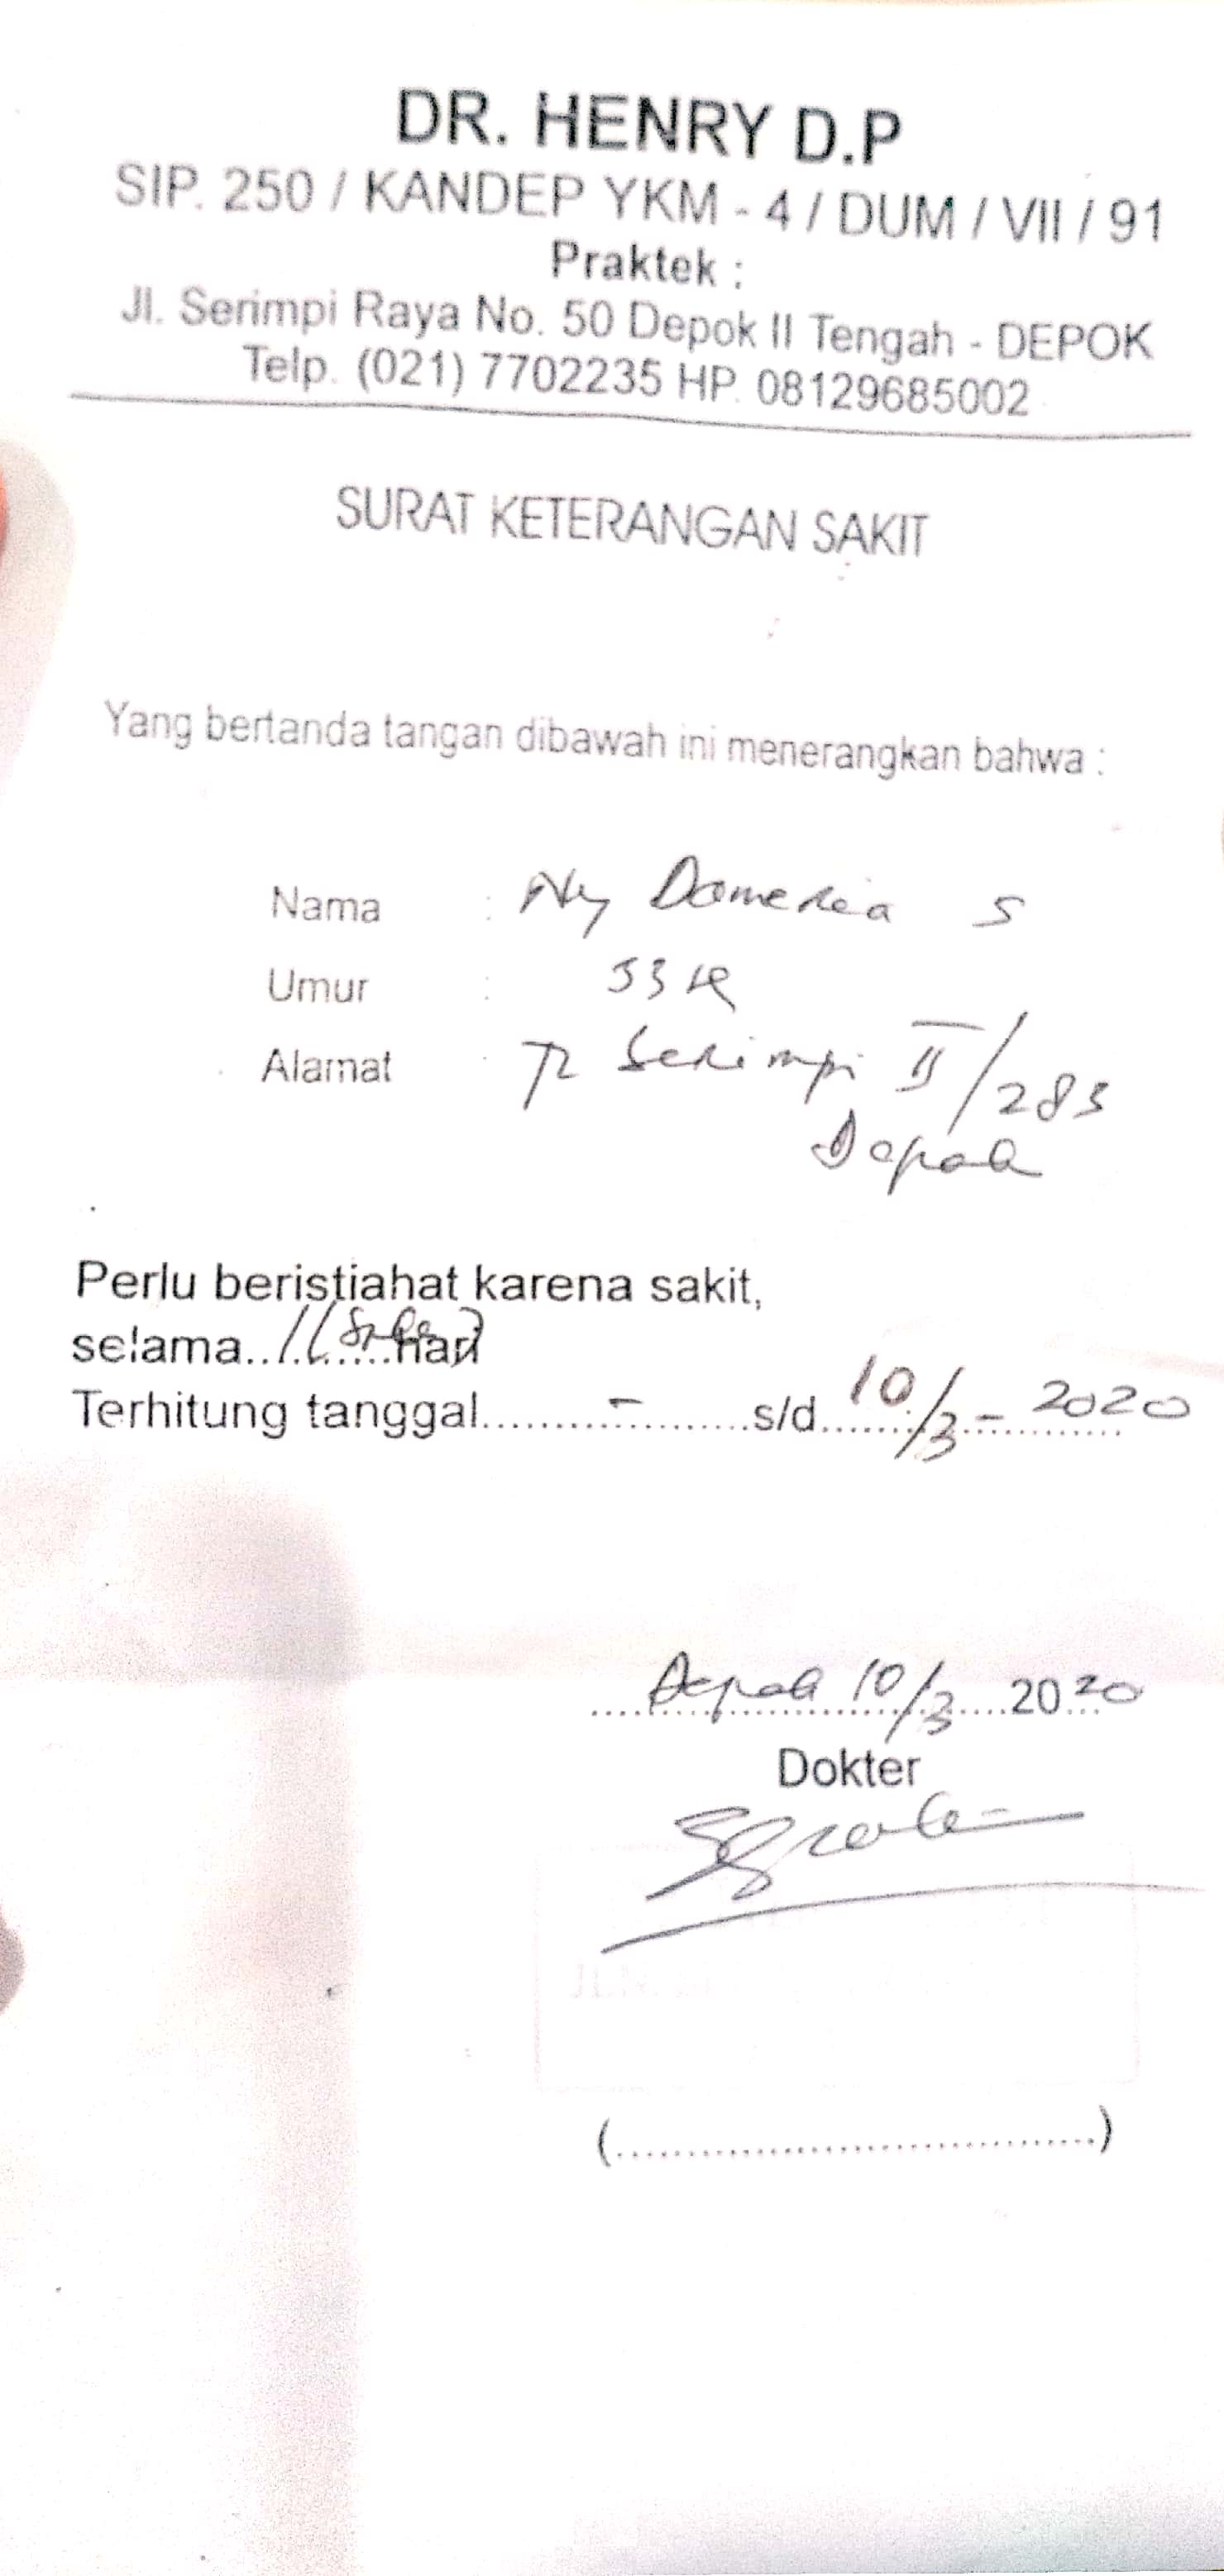 DR. HENRY D.P
SIP. 250 / KANDEP YKM - 4 / DUM / VII / 91
Praktek :
Jl. Serimpi Raya No. 50 Depok II Tengah - DEPOK
Telp. (021) 7702235 HP. 08129685002
SURAT KETERANGAN SAKIT
Yang bertanda tangan dibawah ini menerangkan bahwa :
Nama : Ny Domeria S
Umur : 53
Alamat : Serimpi II/283
Depok
Perlu beristiahat karena sakit,
selama.. 1 ( .....hari
Terhitung tanggal.......-.......s/d 10/3 - 2020
Depok 10/3 2020
Dokter
(....................................)